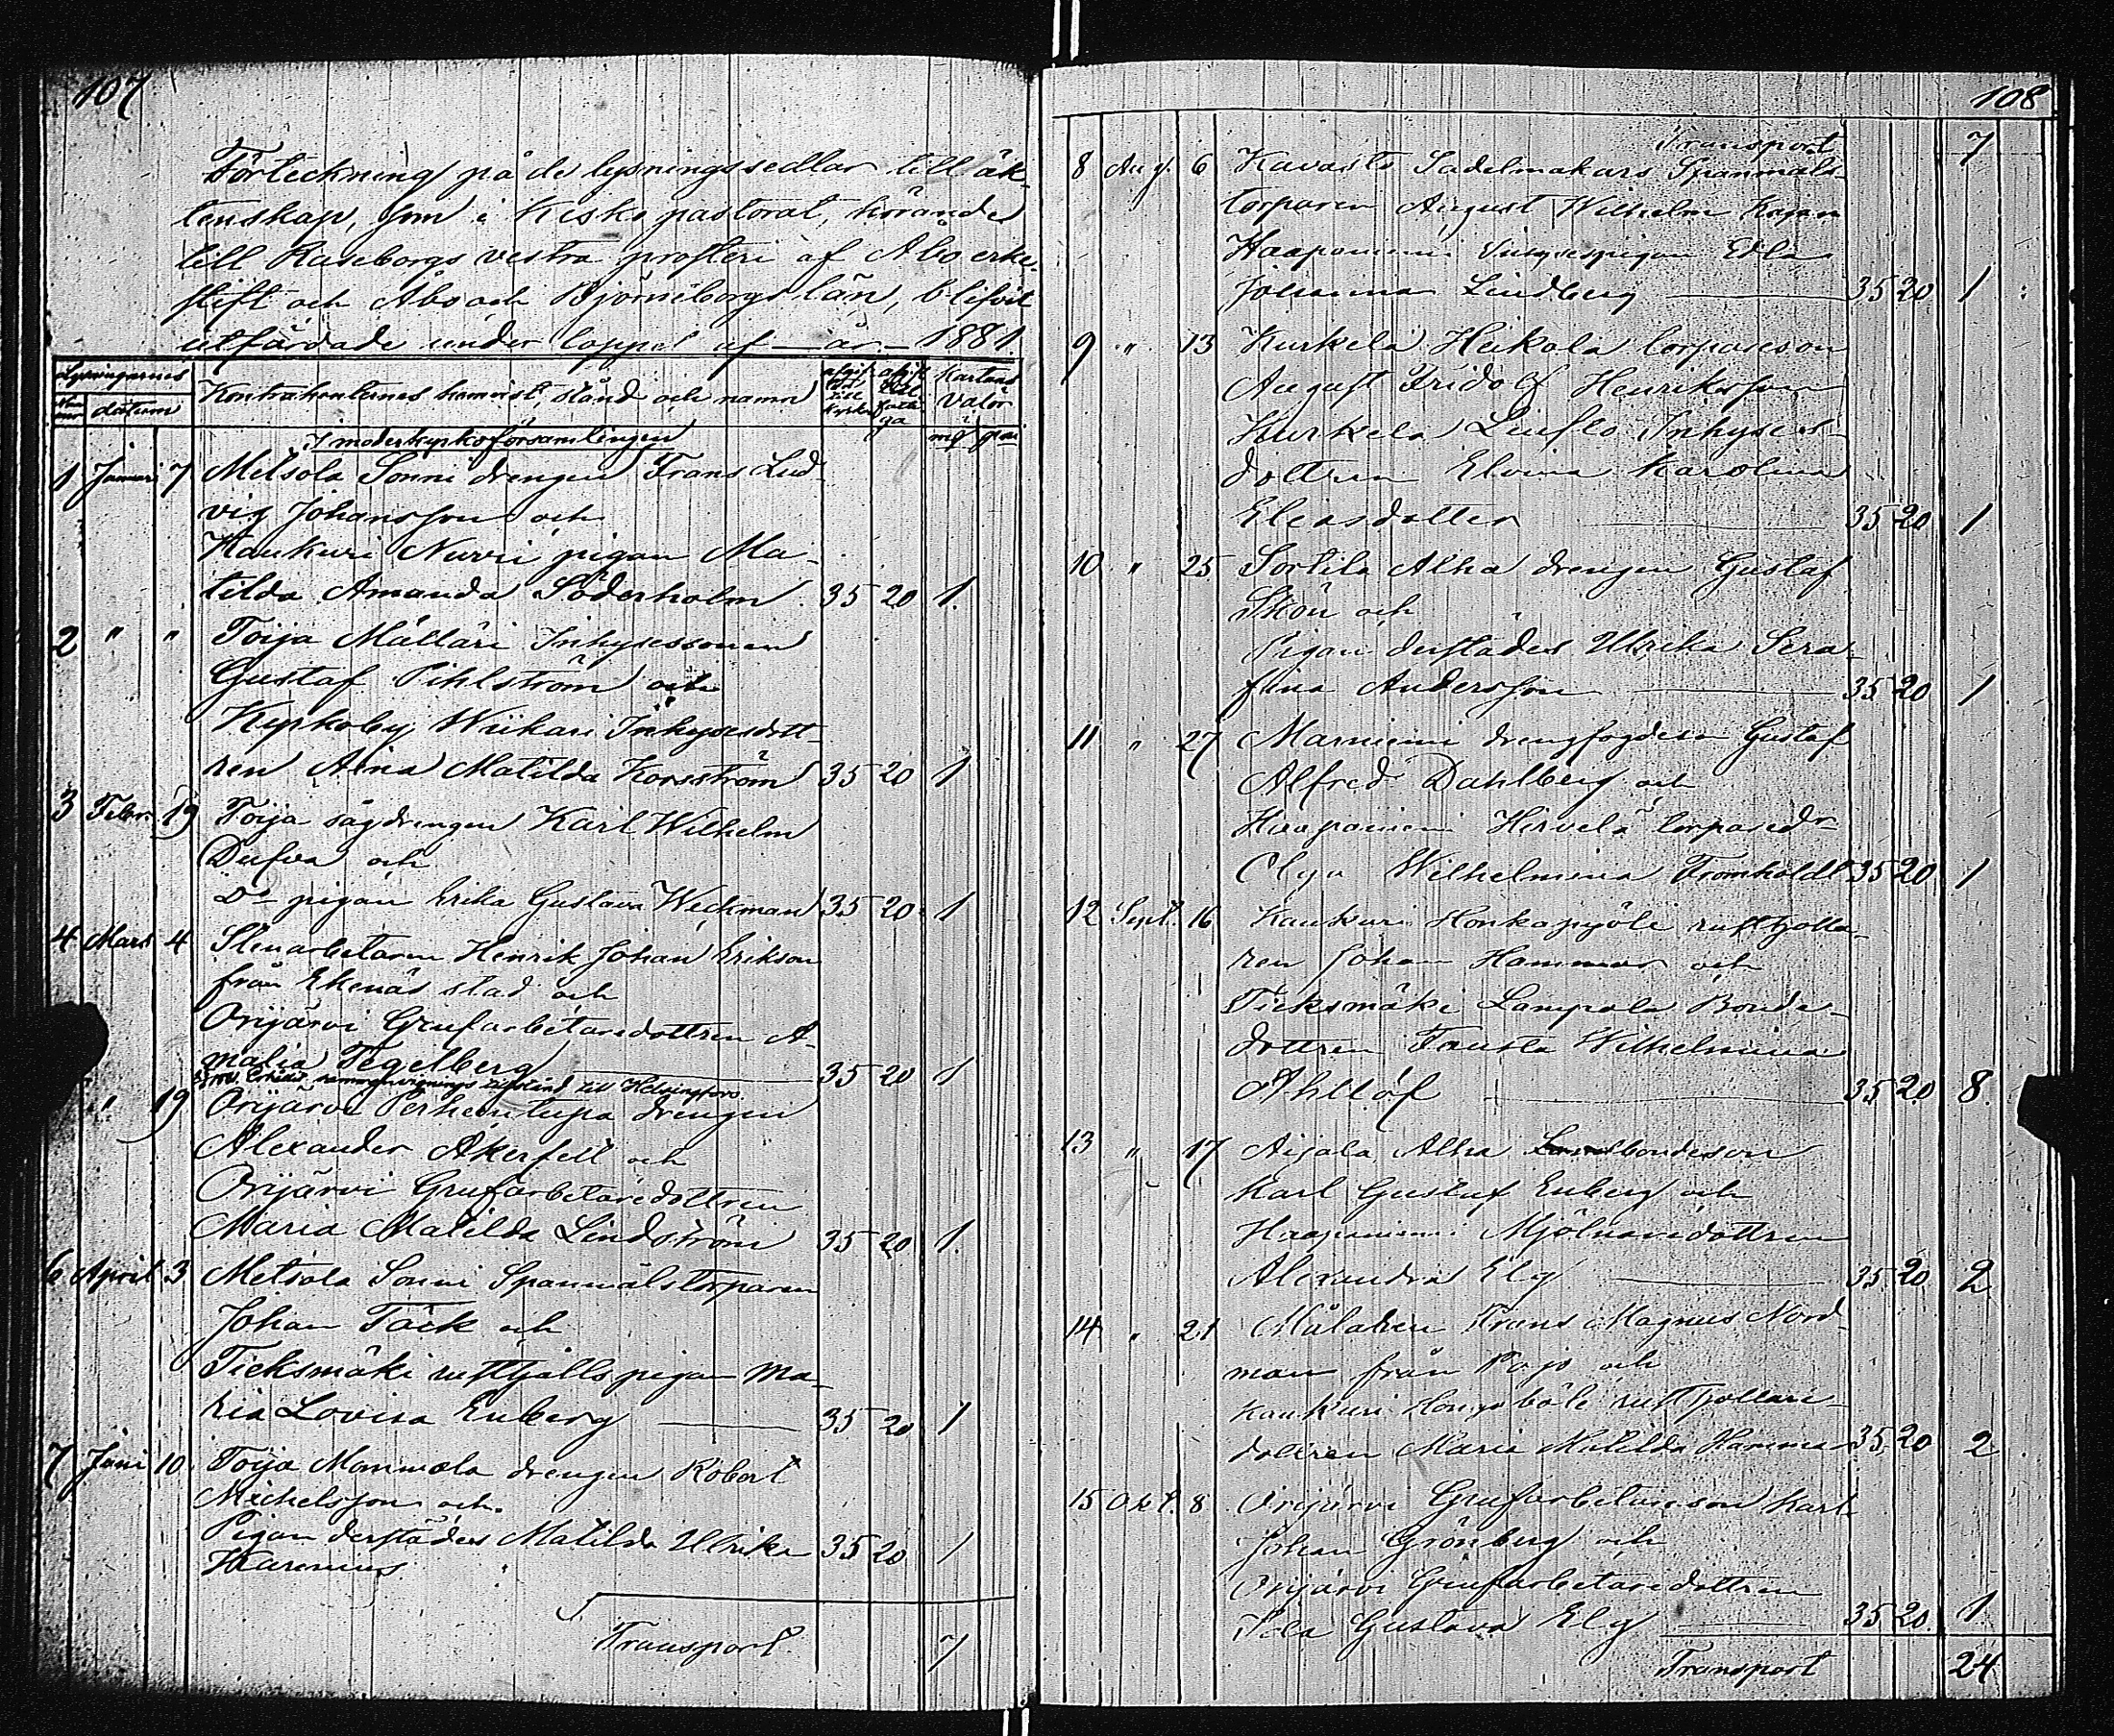 107
Förteckning på de lysningssedlar till äk-
tenskap, som i Kisko pastorat, hörande
till Raseborgs vestra prosteri af Åbo erke-
stift och Åbo och Björneborgs län, blifvit
utfärdade under loppet af — år — 1881.
Lysningarnes
datum
Kontrahenternes hemvist, stånd och namn
Kartans
valör
I moderkyrkoförsamlingen
1 Januari 7 Metsola Sonni drengen Frans Lud-
vig Johansson och
Kaukuri Nurri pigan Ma-
tilda Amanda Söderholm 35 20 1.
2 " " Toija Mälläri Inhysessonen
Gustaf Pihlström och
Kyrkoby Wiikari Inhysesdott-
ren Aina Matilda Korsström 35 20 1
3 Febr. 19 Toija sågdrengen Karl Wilhelm
Dufva och
Do pigan Erika Gustava Weckman 35 20 1
4 Mars 4 Stenarbetaren Henrik Johan Erikson
från Ekenäs stad och
Orijärvi Grufarbetaredottren A-
malia Tegelberg 35 20 1
till Helsingfors.
" 19 Orijärvi Perheentupa drengen
Alexander Åkerfelt och
Orijärvi Grufarbetaredottren
Maria Matilda Lindström 35 20 1.
6 April 3 Metsola Sonni Spanmålstorparen
Johan Täck och
Tieksmäki rusthålls pigan Ma-
ria Lovisa Enberg 35 20 1
7 Juni 10 Toija Mommola drengen Robert
Michelsson och
Pigan derstädes Matilda Ulrika 35 20 1
Transport 7
108
Transport 7
8 Aug. 6 Kavasto Sadelmakars Spanmåls-
torparen August Wilhelm
Haapaniemi Inhysespigan Edla
Johanna Lindberg 35 20 1
9 " 13 Kurkela Heikola torpareson
August Fridolf Henriksson
Kurkela Inhyses-
dottren Elvina Karolina
Eliasdotter 35 20 1
10 " 25 Sortila Alha drengen Gustaf
Skön och
Pigan derstädes Ulrika Sera-
fina Andersson 35 20 1
11 " 27 Marniemi drengfogden Gustaf
Alfred Dahlberg och
Haapaniemi Hirvelä torparedr
Olga Wilhelmina Fromholdt 35 20 1
12 Sept. 16 Kaukuri Honkapyöli rusthålla-
ren Johan Hammar och
Tieksmäki Lampola Bonde-
dottren Fausta Wilhelmina
Ahllöf 35 20 8
13 " 17 Aijala Alha bondeson
Karl Gustaf Enberg och
Haapaniemi Mjölnaredottren
Alexandra Elg 35 20 2
14 " 21 Målaren Frans Magnus Nord-
man från Pojo och
Kaukuri Hongaböle rusthållare-
dottren Maria Matilda Hammar 35 20 2
15 Okt. 8 Orijärvi Grufarbetareson Karl
Johan Grönberg och
Orijärvi Grufarbetaredottren
Ida Gustava Elg 35 20 1
Transport 24